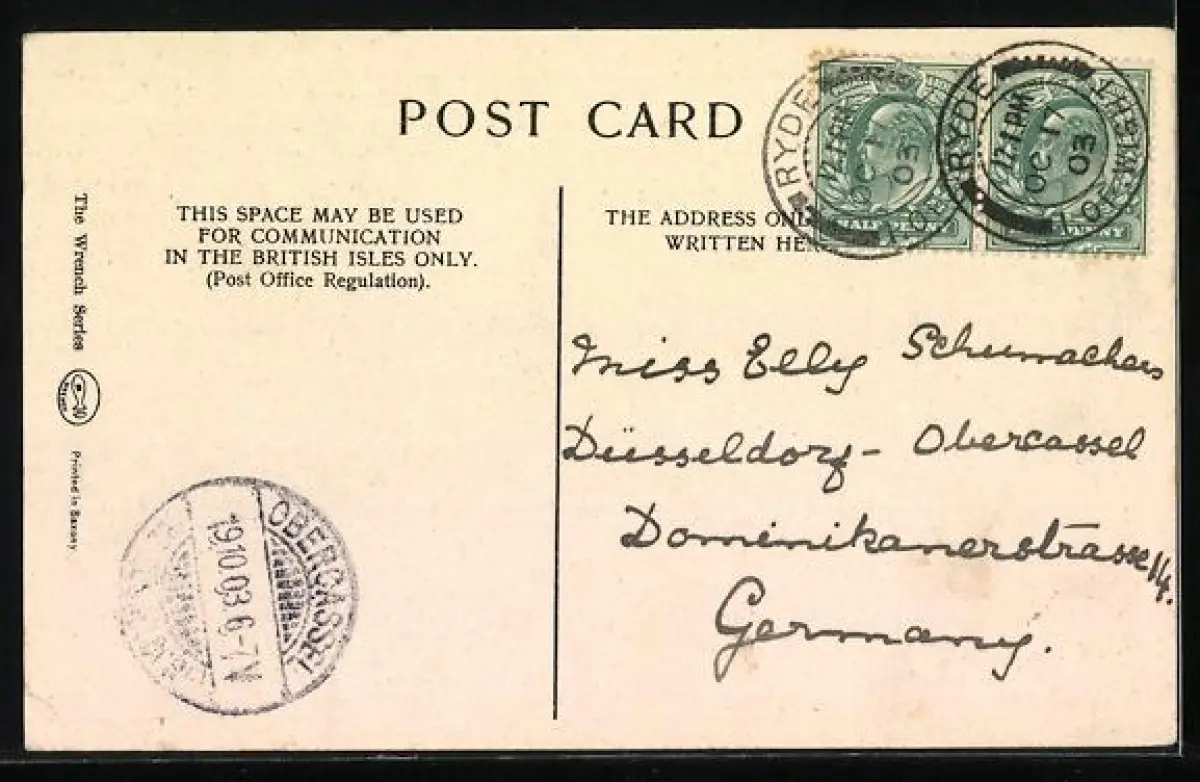 POST CARD
THIS SPACE MAY BE USED
FOR COMMUNICATION
IN THE BRITISH ISLES ONLY.
(Post Office Regulation).
THE ADDRESS ONL
WRITTEN HE
RYDE
12.15PM
OC 17
03
RYDE
12.15PM
OC 17
03
I. OF WIGHT
HALF PENNY
Miss Elly Schumachers
Düsseldorf - Obercassel
Dominikanerstrasse 14.
Germany.
The Wrench Series
Printed in Saxony
OBERCASSEL
19.10.03.6-7N